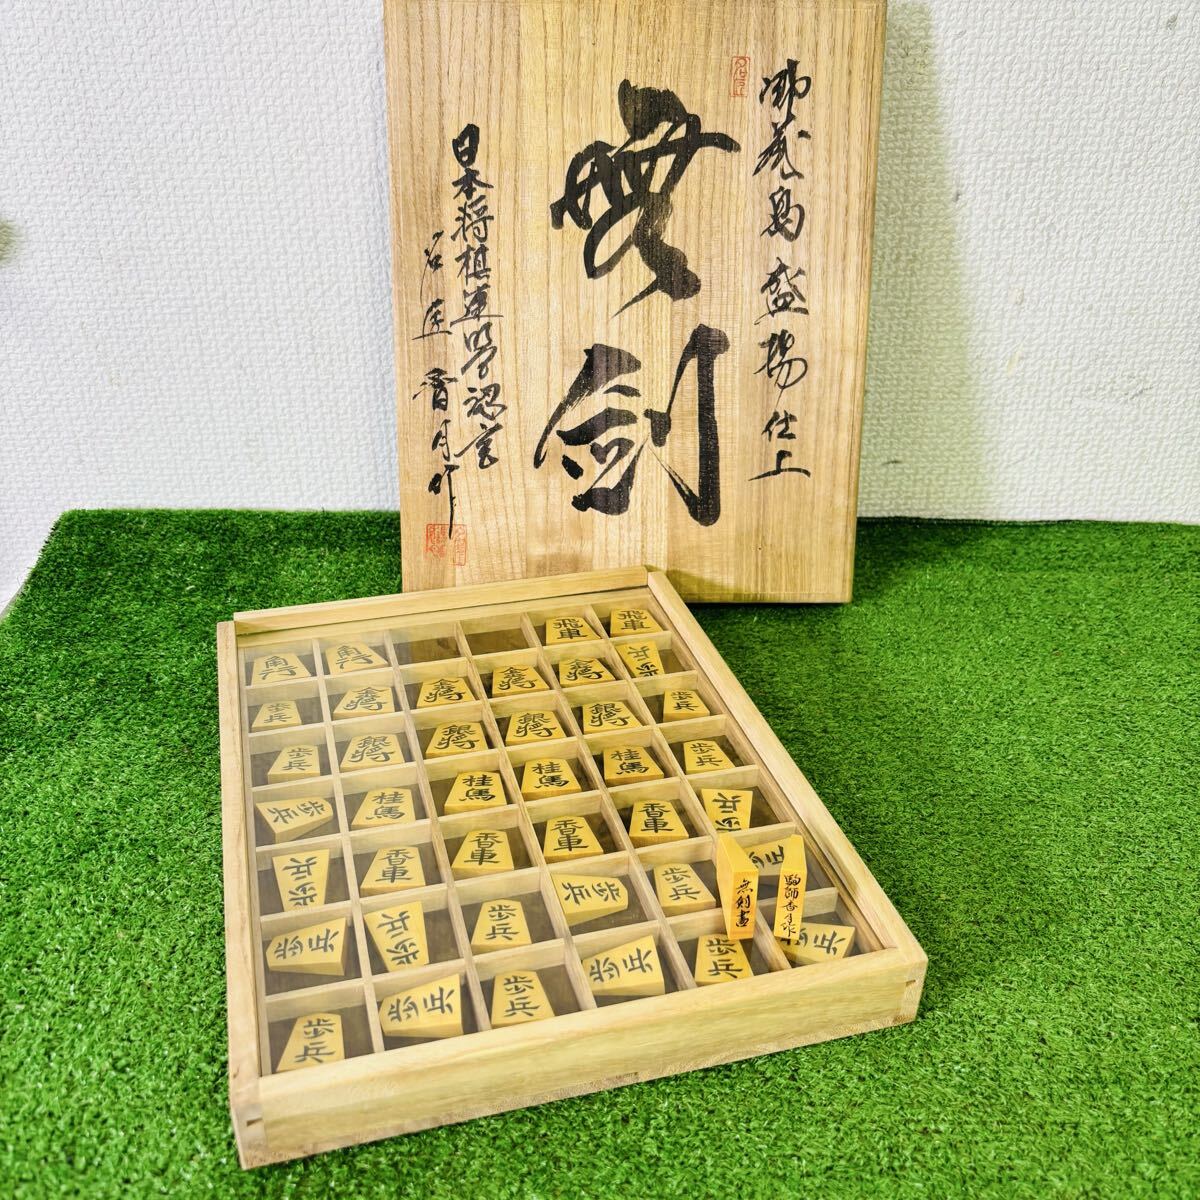 御蔵島 盛揚 仕上
無剣
日本将棋連盟認定
名匠 香月作
飛車
飛車
角行
角行
金将
金将
金将
金将
歩兵
歩兵
銀将
銀将
銀将
銀将
歩兵
歩兵
桂馬
桂馬
桂馬
桂馬
歩兵
歩兵
香車
香車
香車
香車
歩兵
歩兵
歩兵
歩兵
歩兵
歩兵
歩兵
歩兵
歩兵
歩兵
歩兵
歩兵
無剣書
駒師香月作